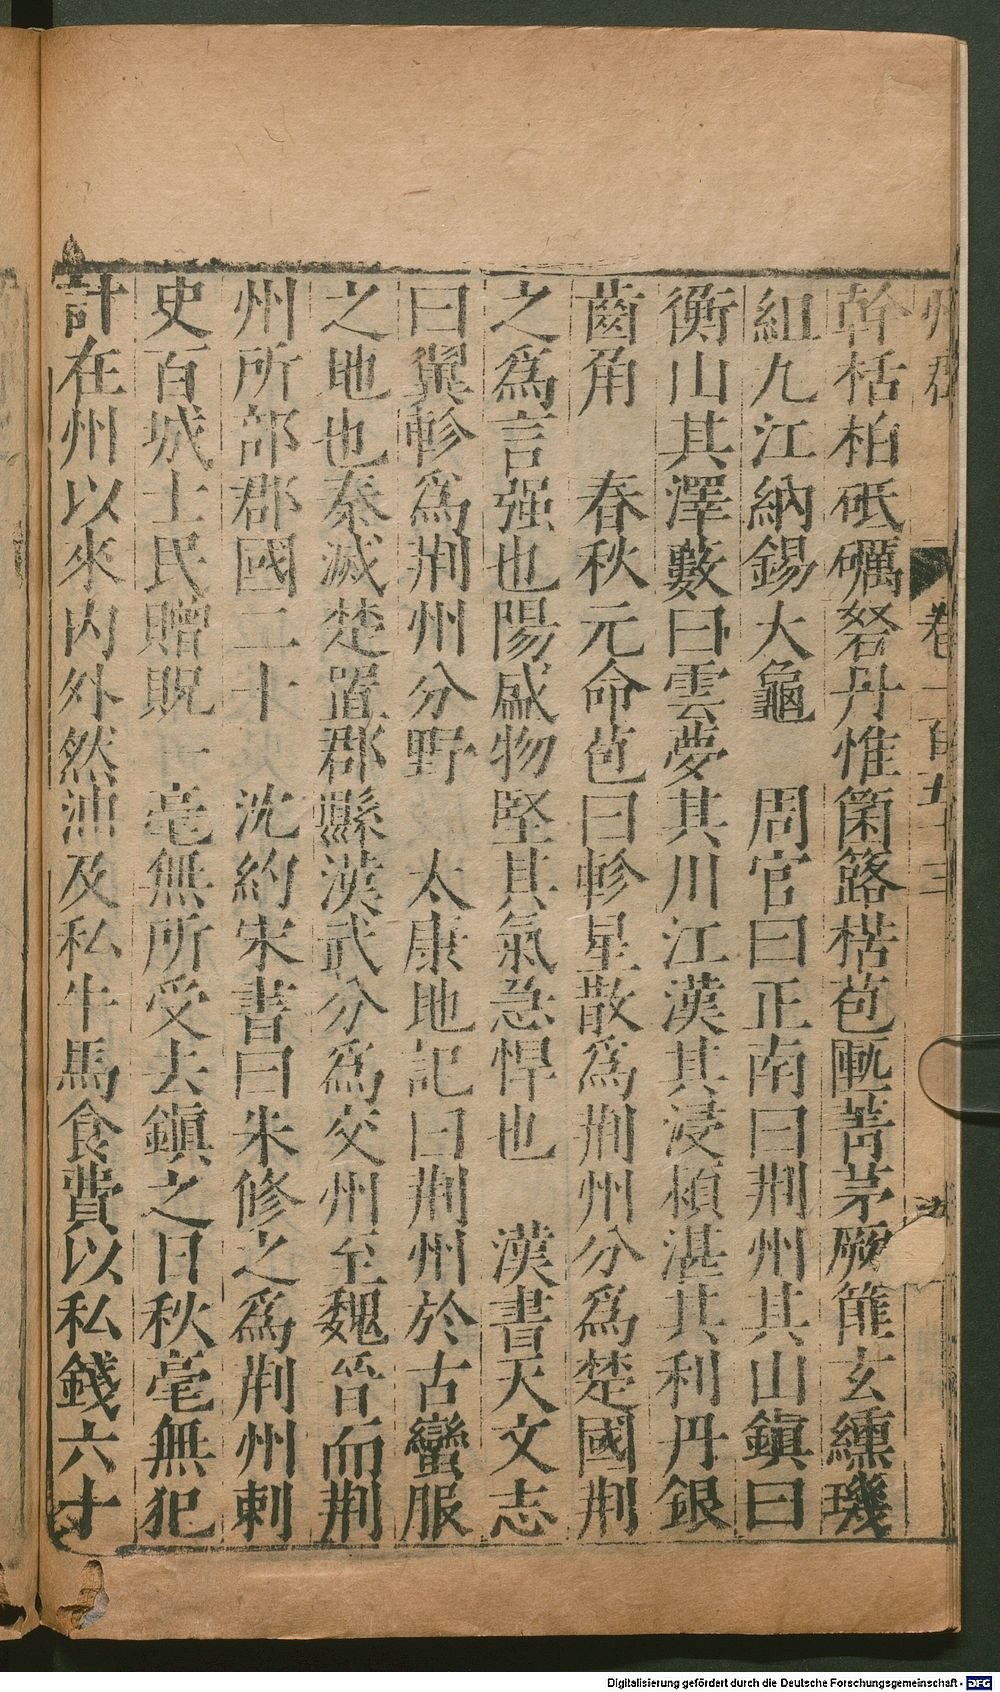 州郡
卷一百五十三
幹栝柏砥礪砮丹惟箘簬楛苞匭菁茅厥篚玄纁璣
組九江納錫大龜 周官曰正南曰荆州其山鎮曰
衡山其澤藪曰雲夢其川江漢其浸熲湛其利丹銀
齒角 春秋元命苞曰軫星散爲荆州分爲楚國荆
之爲言强也陽盛物堅其氣急悍也 漢書天文志
曰翼軫爲荆州分野 太康地記曰荆州於古蠻服
之地也秦滅楚置郡縣漢武分爲交州至魏晉而荆
州所部郡國二十 沈約宋書曰朱修之爲荆州刺
史百城士民贈貺一毫無所受去鎮之日秋毫無犯
計在州以來内外然油及私牛馬食費以私錢六十
Digitalisierung gefördert durch die Deutsche Forschungsgemeinschaft - DFG